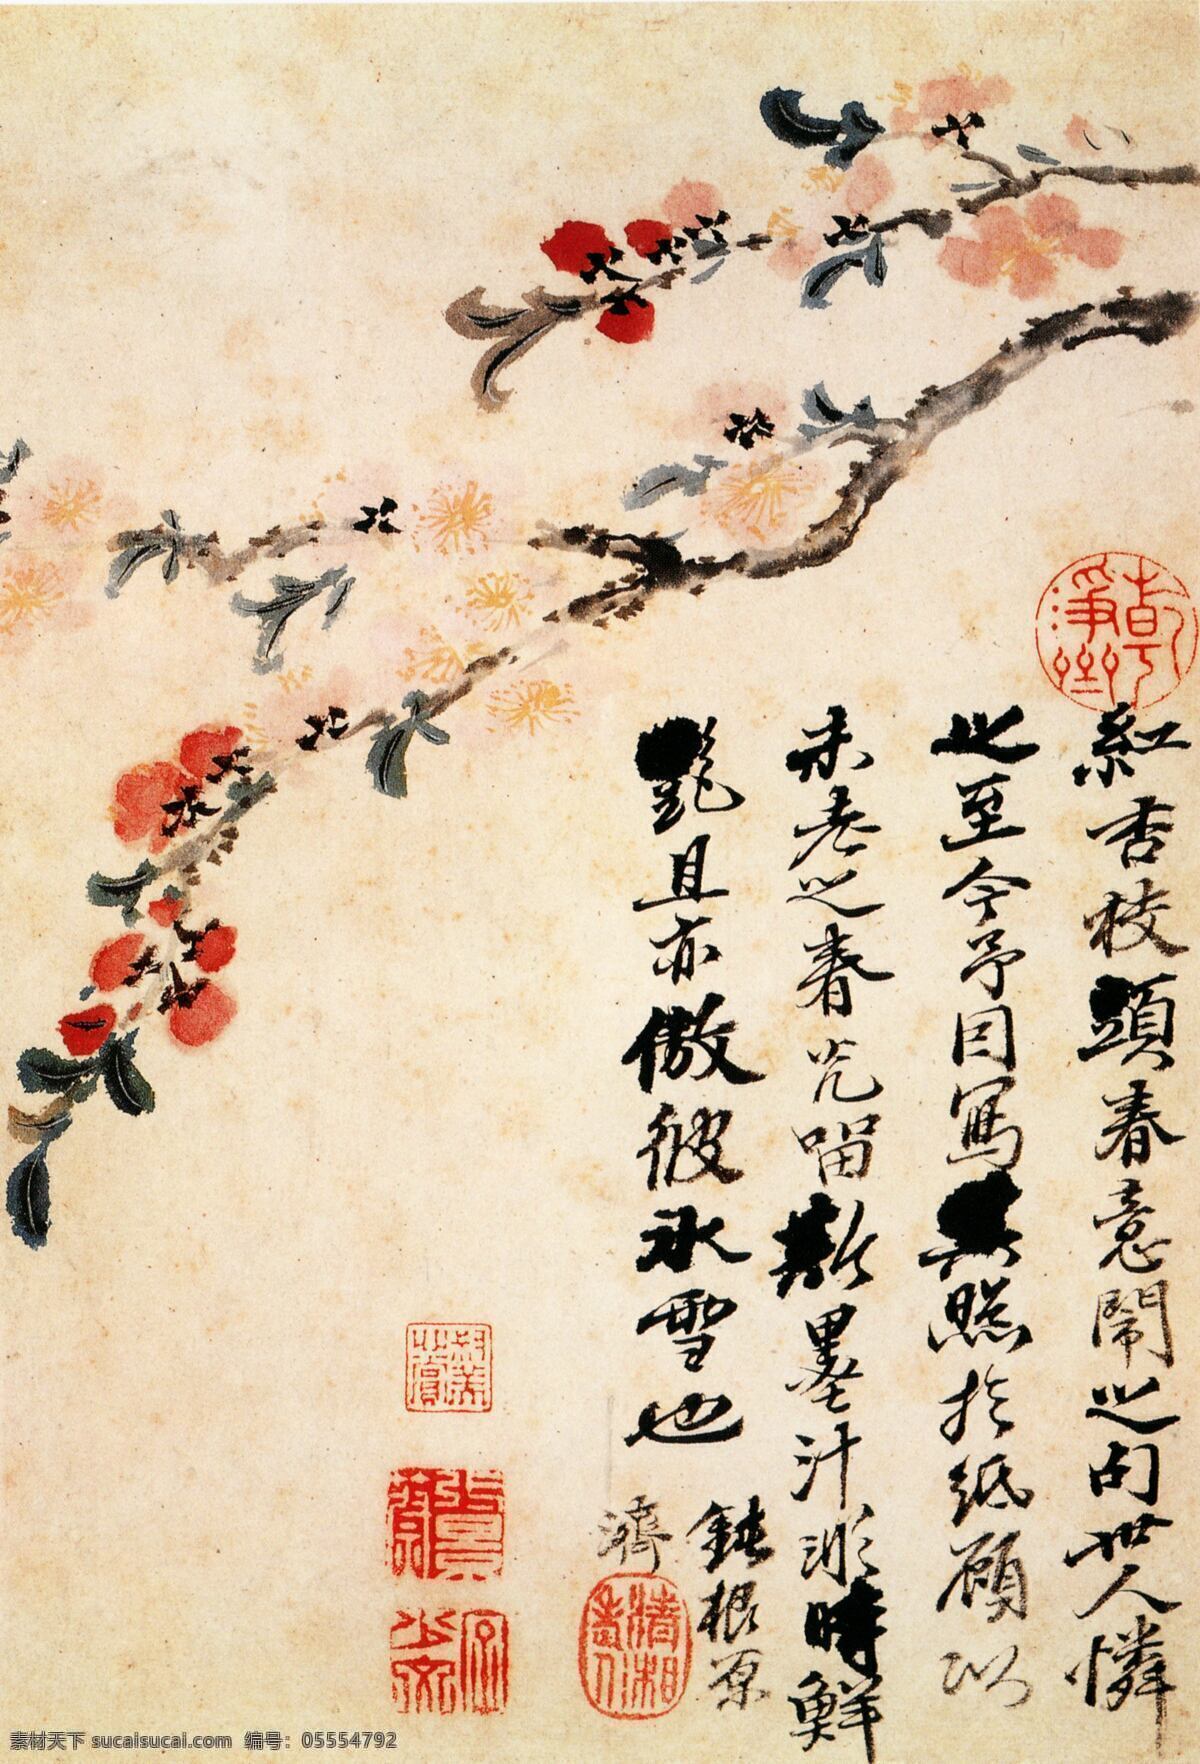 紅杏枝頭春意鬧之句世人憐
之至今予因寫其照於紙顧以
未老之春光留斯墨汁時鮮
艷且亦傲彼冰雪也
鈍根原
濟
清湘老人
素材天下 sucaisucai.com 编号：05554792